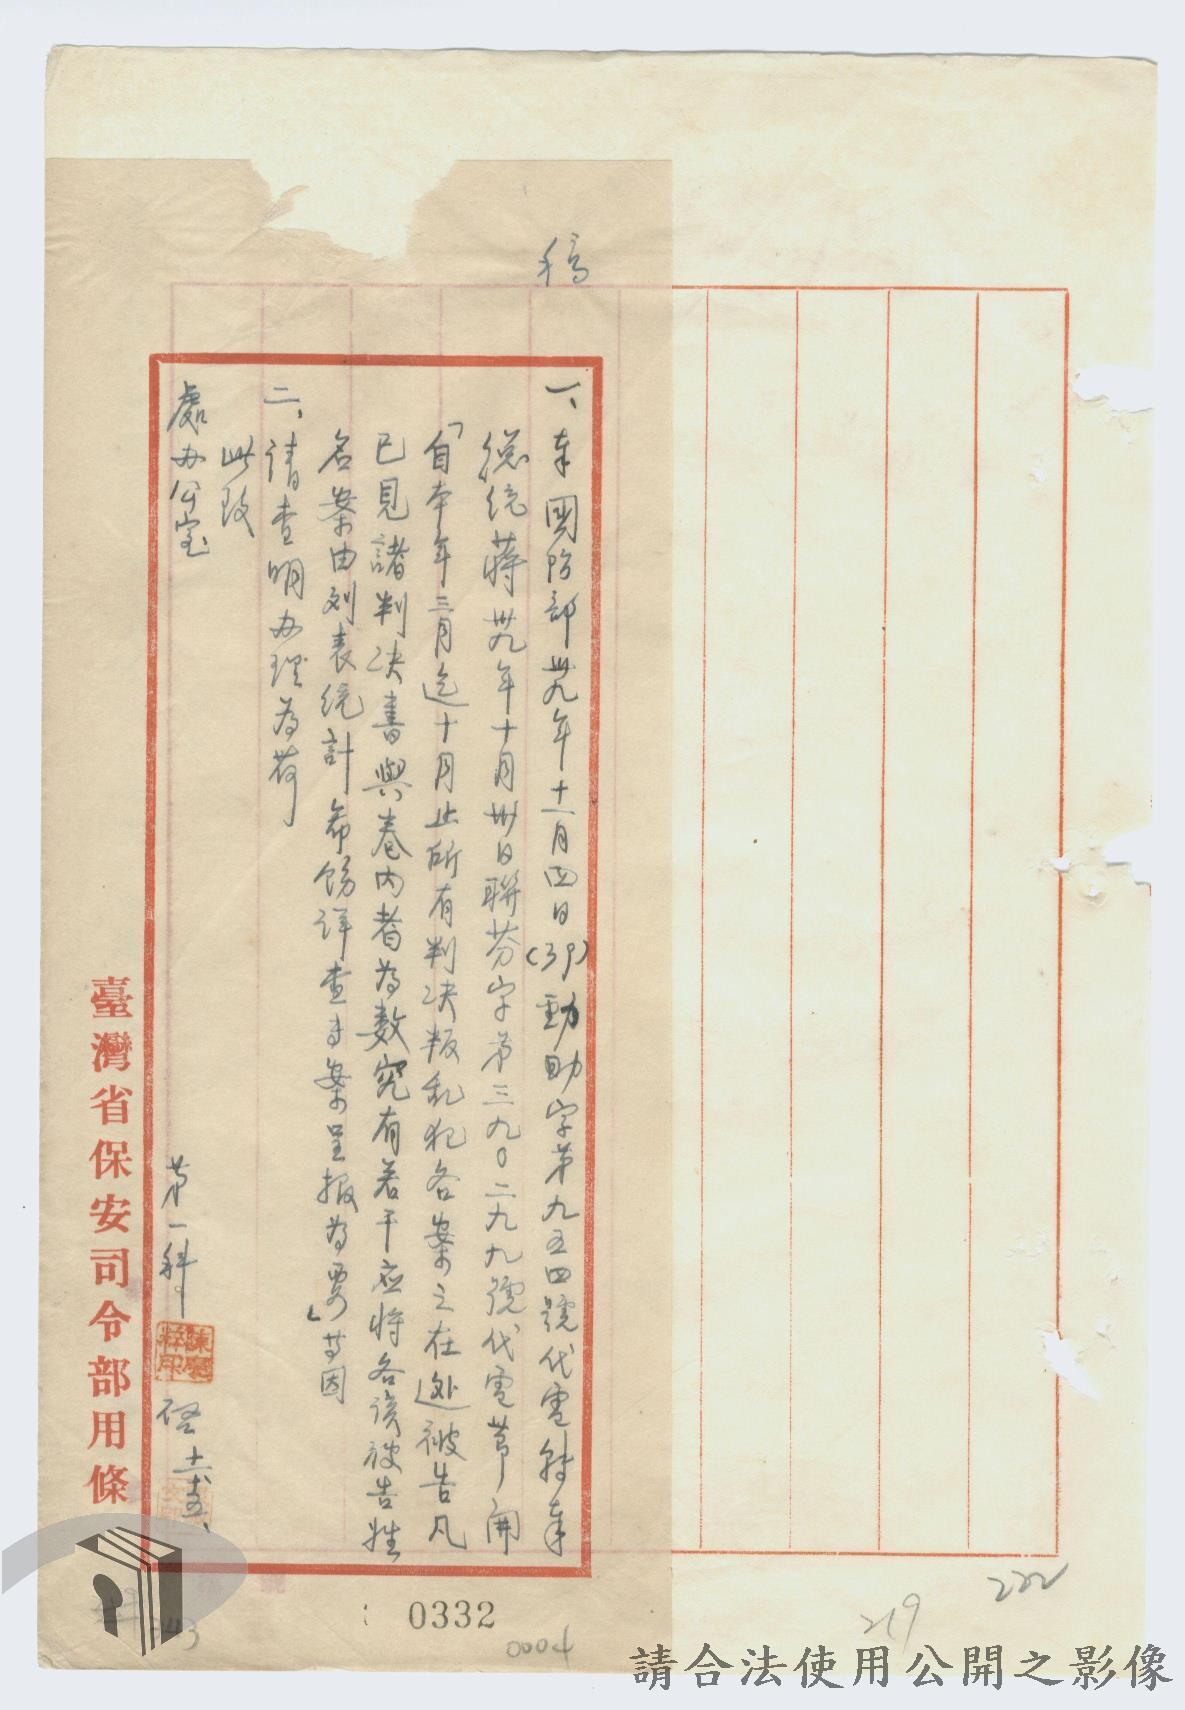 稿
一、奉國防部卅九年十一月四日(39)勁助字第九五四號代電轉奉
總統蔣卅九年十月卅日聯芬字第三九〇二九九號代電節開
「自本年三月迄十月止所有判决叛乱犯各案之在逃被告凡
已見諸判决書與卷内者為数究有若干应将各该被告姓
名案由列表統計希飭详查专案呈报為要」等因
二、请查明办理為荷
此致
處办公室
第一科
啓十一、
臺灣省保安司令部用條
0332
0004
219
222
請合法使用公開之影像